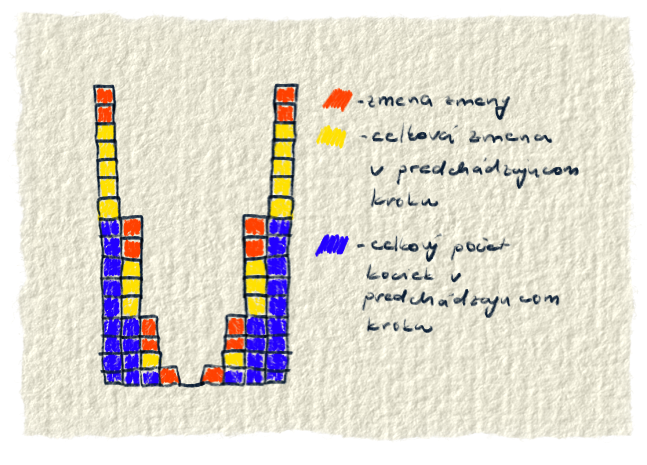 - zmena zmeny
- celková zmena
v predchádzajucom
kroku
- celkový počet
kociek v
predchádzaju com
kroku